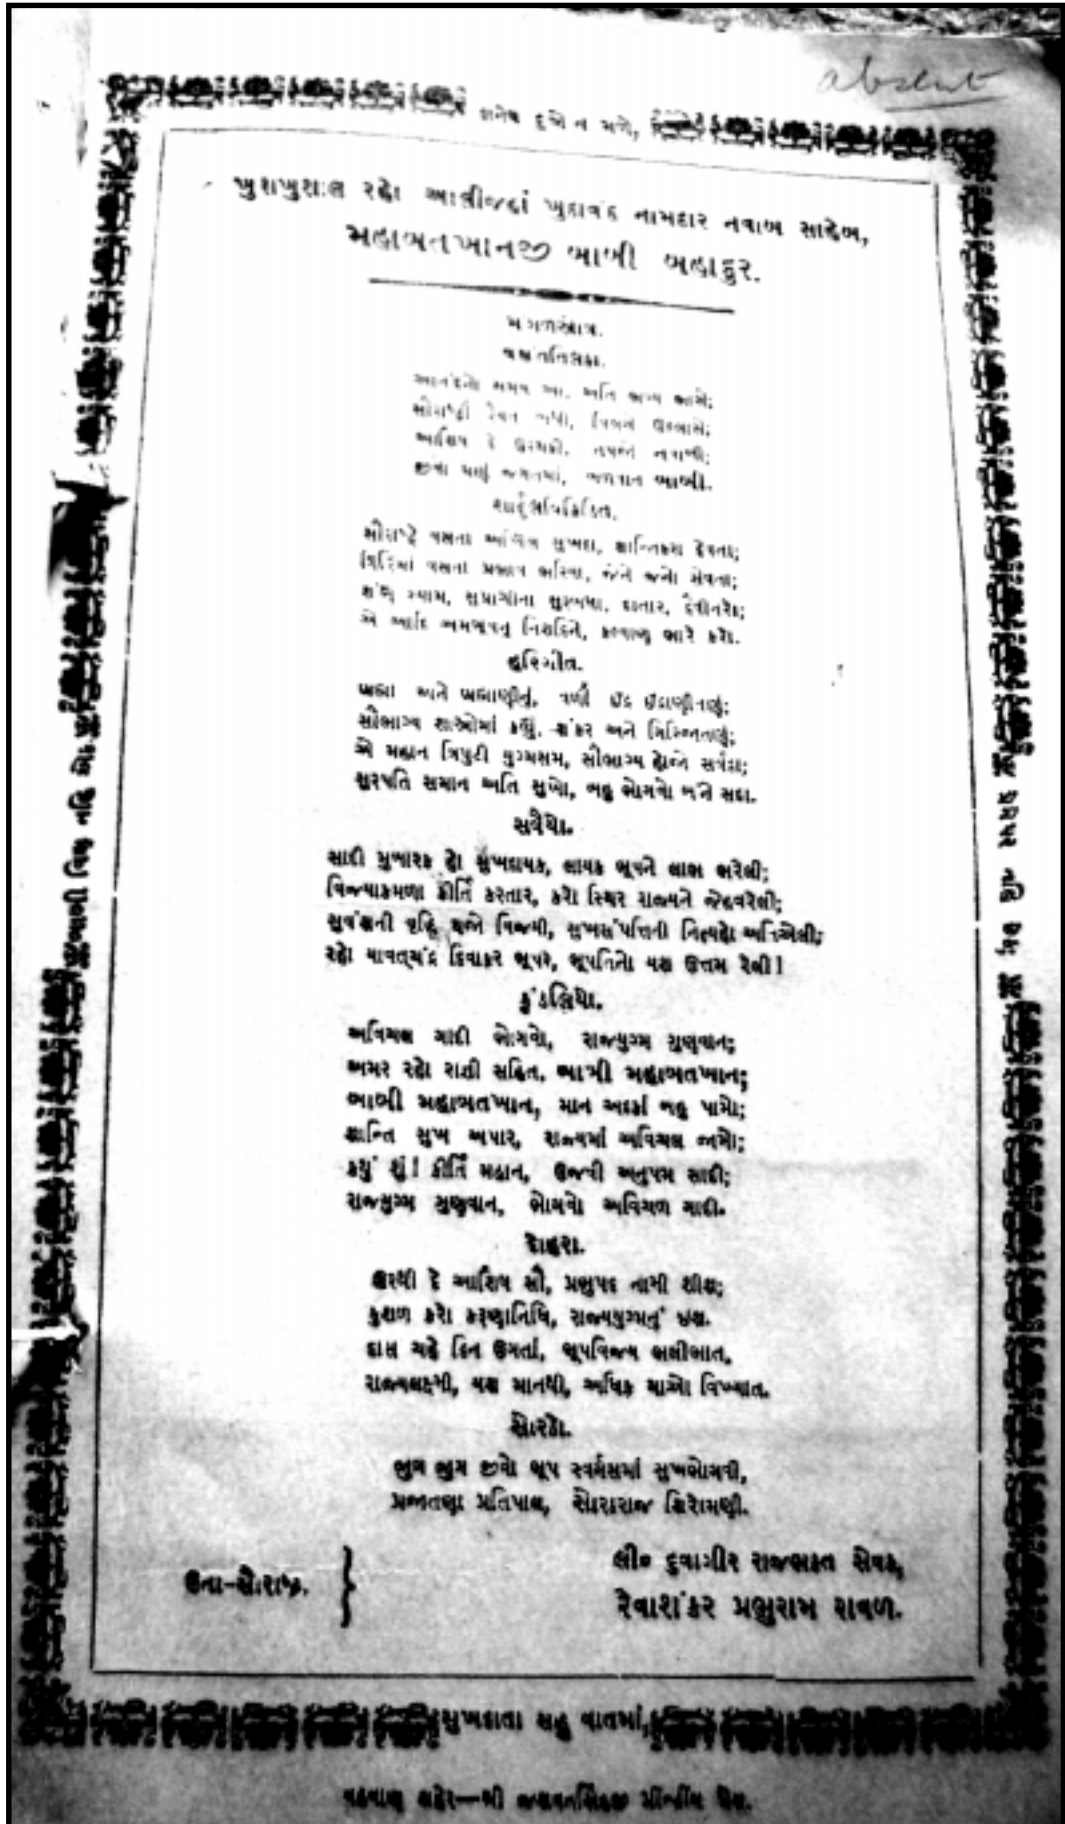 absent
ખુશખુશાલ રહો આલીજહાં ખુદાવંદ નામદાર નવાબ સાહેબ,
મહાબતખાનજી બાબી બહાદુર.
વસંતતિલકા.
આનંદનો સમય આ, અતિ ભવ્ય ભાસે;
આશિષ દે ઉરથકી,
જીવો ઘણું જગતમાં, બળવાન બાબી.
શાર્દૂલવિક્રિડિત.
સૌરાષ્ટ્રે વસતા સુખદા, શાન્તિકરા દેવતા;
ગિરિમાં વસતા પ્રભાવ ભરિયા, જેને જનો સેવતા;
એ આદિ અમભૂપનુ નિશદિને, કલ્યાણ ભારે કરો.
હરિગીત.
બ્રહ્મા અને બ્રહ્માણીનું, વળી ઇંદ્ર ઇંદ્રાણીતણું;
સૌભાગ્ય શાસ્ત્રોમાં કહ્યું, શંકર અને ગિરિજાતણું;
એ મહાન ત્રિપુટી યુગ્મસમ, સૌભાગ્ય હોજો સર્વદા;
સુરપતિ સમાન અતિ સુખો, બહુ ભોગવો બંને સદા.
સવૈયો.
સાદી મુબારક હો સુખદાયક, લાયક ભૂપને લાભ ભરેલી;
વિજ્યાકમળા કીર્તિ કરતાર, કરો સ્થિર રાજ્યને જેહવરેલી;
સુવંશની વૃદ્ધિ થજો વિજયી, સુખસંપત્તિની નિત્યહો અતિએલી;
રહો યાવત્ચંદ્ર દિવાકર ભૂપર, ભૂપતિનો યશ ઉત્તમ રેલી!
કુંડળિયો.
અવિચલ ગાદી ભોગવો, રાજયુગ્મ ગુણવાન;
અમર રહો રાજ્ઞી સહિત, બાબી મહાબતખાન;
બાબી મહાબતખાન, માન અદકાં બહુ પામો;
શાન્તિ સુખ અપાર, રાજ્યમાં અવિચલ જામો;
કથું શું! કીર્તિ મહાન, ઉજવી અનુપમ સાદી;
રાજયુગ્મ ગુણવાન, ભોગવો અવિચળ ગાદી.
દોહરા.
ઉરથી દે આશિષ સૌ, પ્રભુપદ નામી શીશ;
કુશળ કરો કરૂણાનિધિ, રાજ્યયુગ્મનું ઇશ.
દાસ ચહે દિન ઉગતાં, ભૂપવિજય ભલીભાત,
રાજ્યલક્ષ્મી, યશ માનથી, અધિક થાઓ વિખ્યાત.
સોરઠો.
જુગ જુગ જીવો ભૂપ સ્વર્ગસમાં સુખભોગવી,
પ્રજાતણા પ્રતિપાલ, સોરઠરાજ શિરોમણી.
ઉના-સૌરાષ્ટ્ર.
લી૦ દુવાગીર રાજભક્ત સેવક,
રેવાશંકર પ્રભુરામ રાવળ.
સુખદાતા સહુ વાતમાં,
વઢવાણ શહેર—શ્રી જશવતસિંહજી પ્રીન્ટીંગ પ્રેસ.